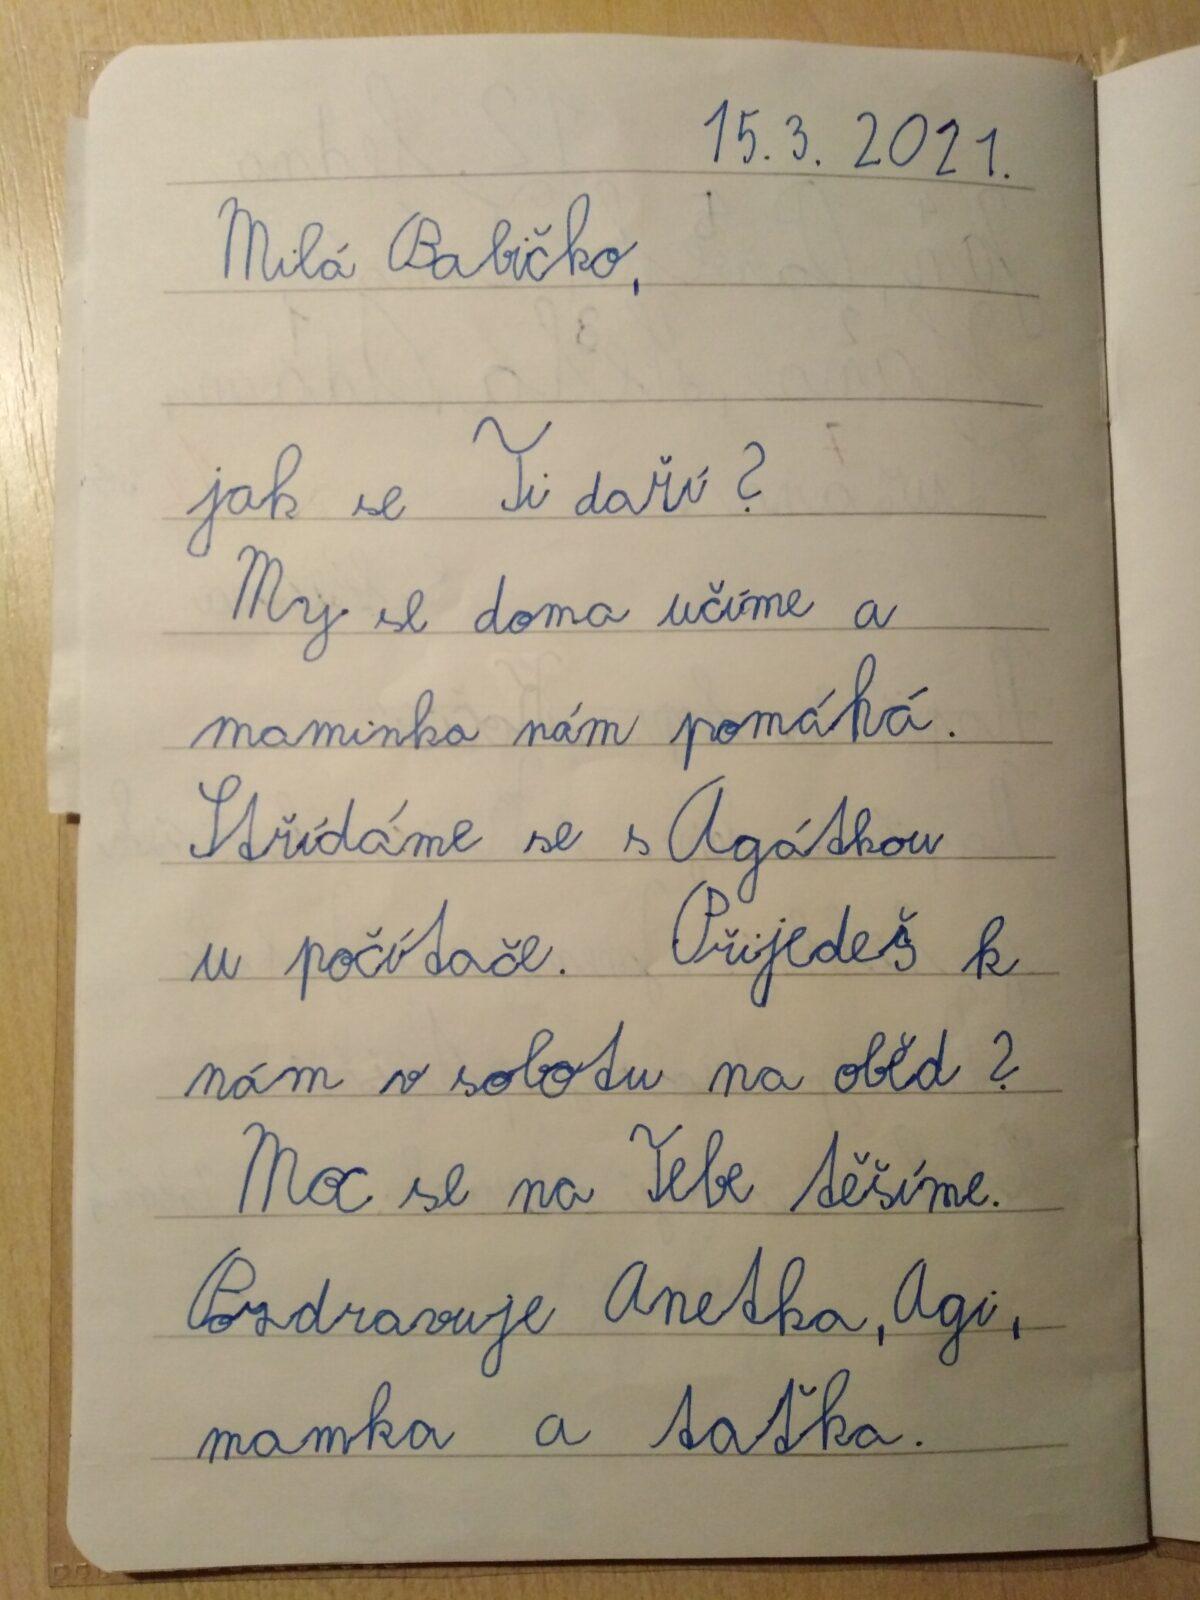 15.3. 2021.
Milá Babičko,
jak se Ti daří?
My se doma učíme a
maminka nám pomáhá.
Střídáme se s Agátkou
u počítače. Přijedeš k
nám v sobotu na oběd?
Moc se na Tebe těšíme.
Pozdravuje Anetka, Agi,
mamka a taťka.